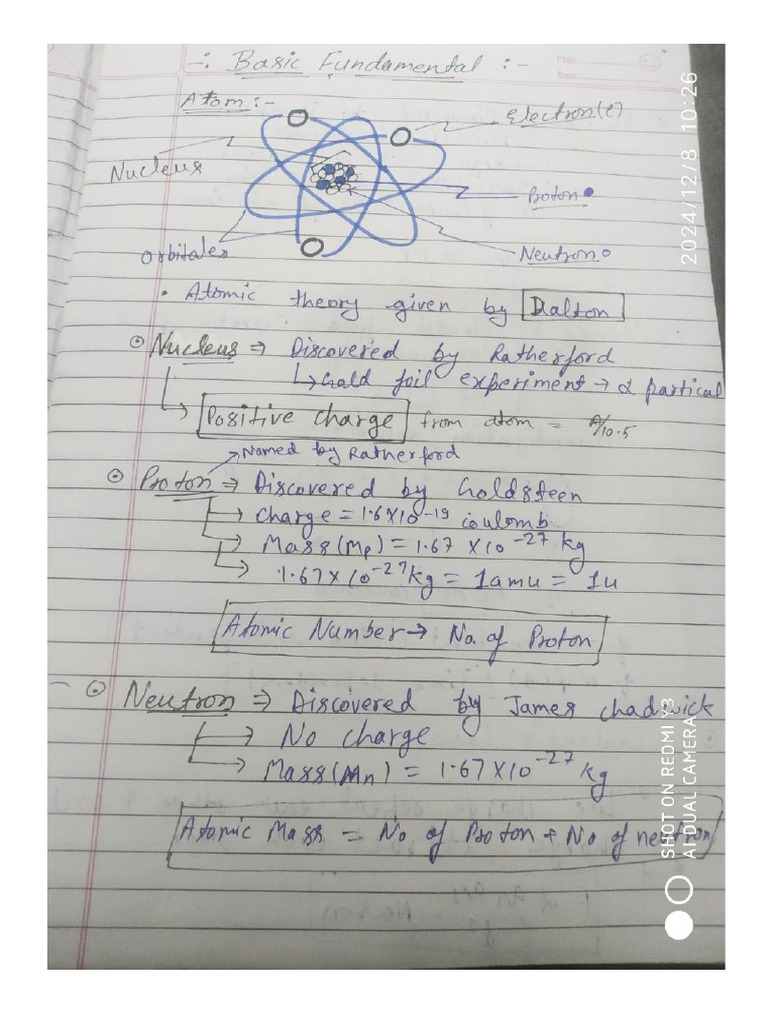 -: Basic Fundamental :-
Atom :-
Electron(e)
Nucleus
Proton
Neutron
Orbitales
• Atomic theory given by Dalton
Nucleus ⇒ Discovered by Ratherford
↳ Gold foil experiment → α partical
↳ Positive charge from atom =
→ Named by Ratherford
Proton ⇒ Discovered by Goldsteen
→ Charge = 1.6×10⁻¹⁹ coulomb
→ Mass (Mp) = 1.67 × 10⁻²⁷ kg
→ 1.67 × 10⁻²⁷ kg = 1amu = 1u
Atomic Number → No. of Proton
Neutron ⇒ Discovered by James chadwick
→ No charge
→ Mass (Mn) = 1.67×10⁻²⁷ kg
Atomic Mass = No of Proton + No of neutron
2024/12/8 10:26
SHOT ON REDMI Y3
AI DUAL CAMERA